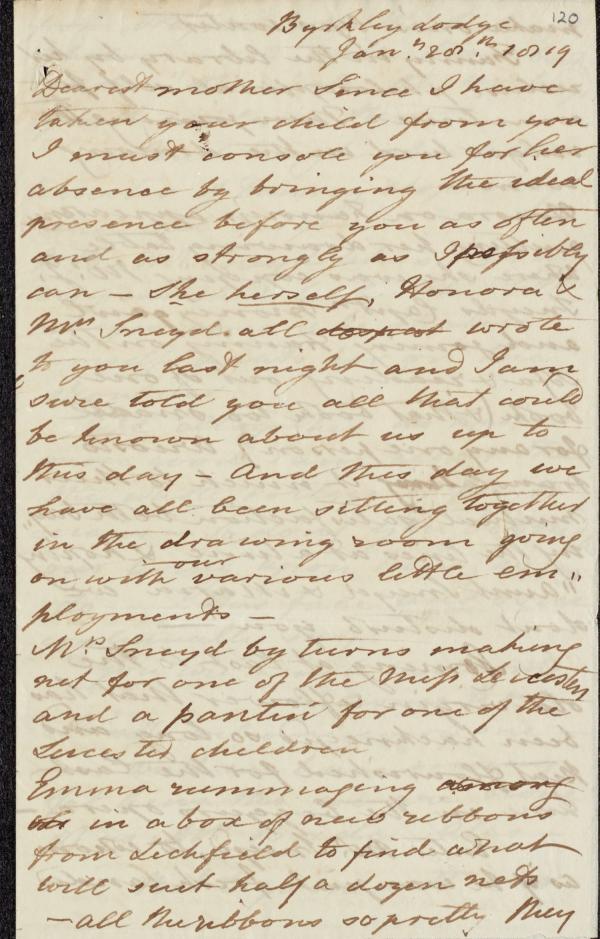 120
Byrkley Lodge
Jany. 20th. 1819
Dearest mother Since I have
taken your child from you
I must console you for her
absence by bringing the ideal
presence before you as often
and as strongly as I possibly
can – She herself, Honora &
Mrs Sneyd all wrote
to you last night and I am
sure told you all that could
be known about us up to
this day – And this day we
have all been sitting together
in the drawing room going
on with our various little em"
ployments –
Mrs. Sneyd by turns making
net for one of the Miss Leicesters
and a pantin for one of the
Leicester children
Emma rummaging among
in a box of new ribbons
from Lichfield to find what
will suit half a dozen nets
– all the ribbons so pretty they